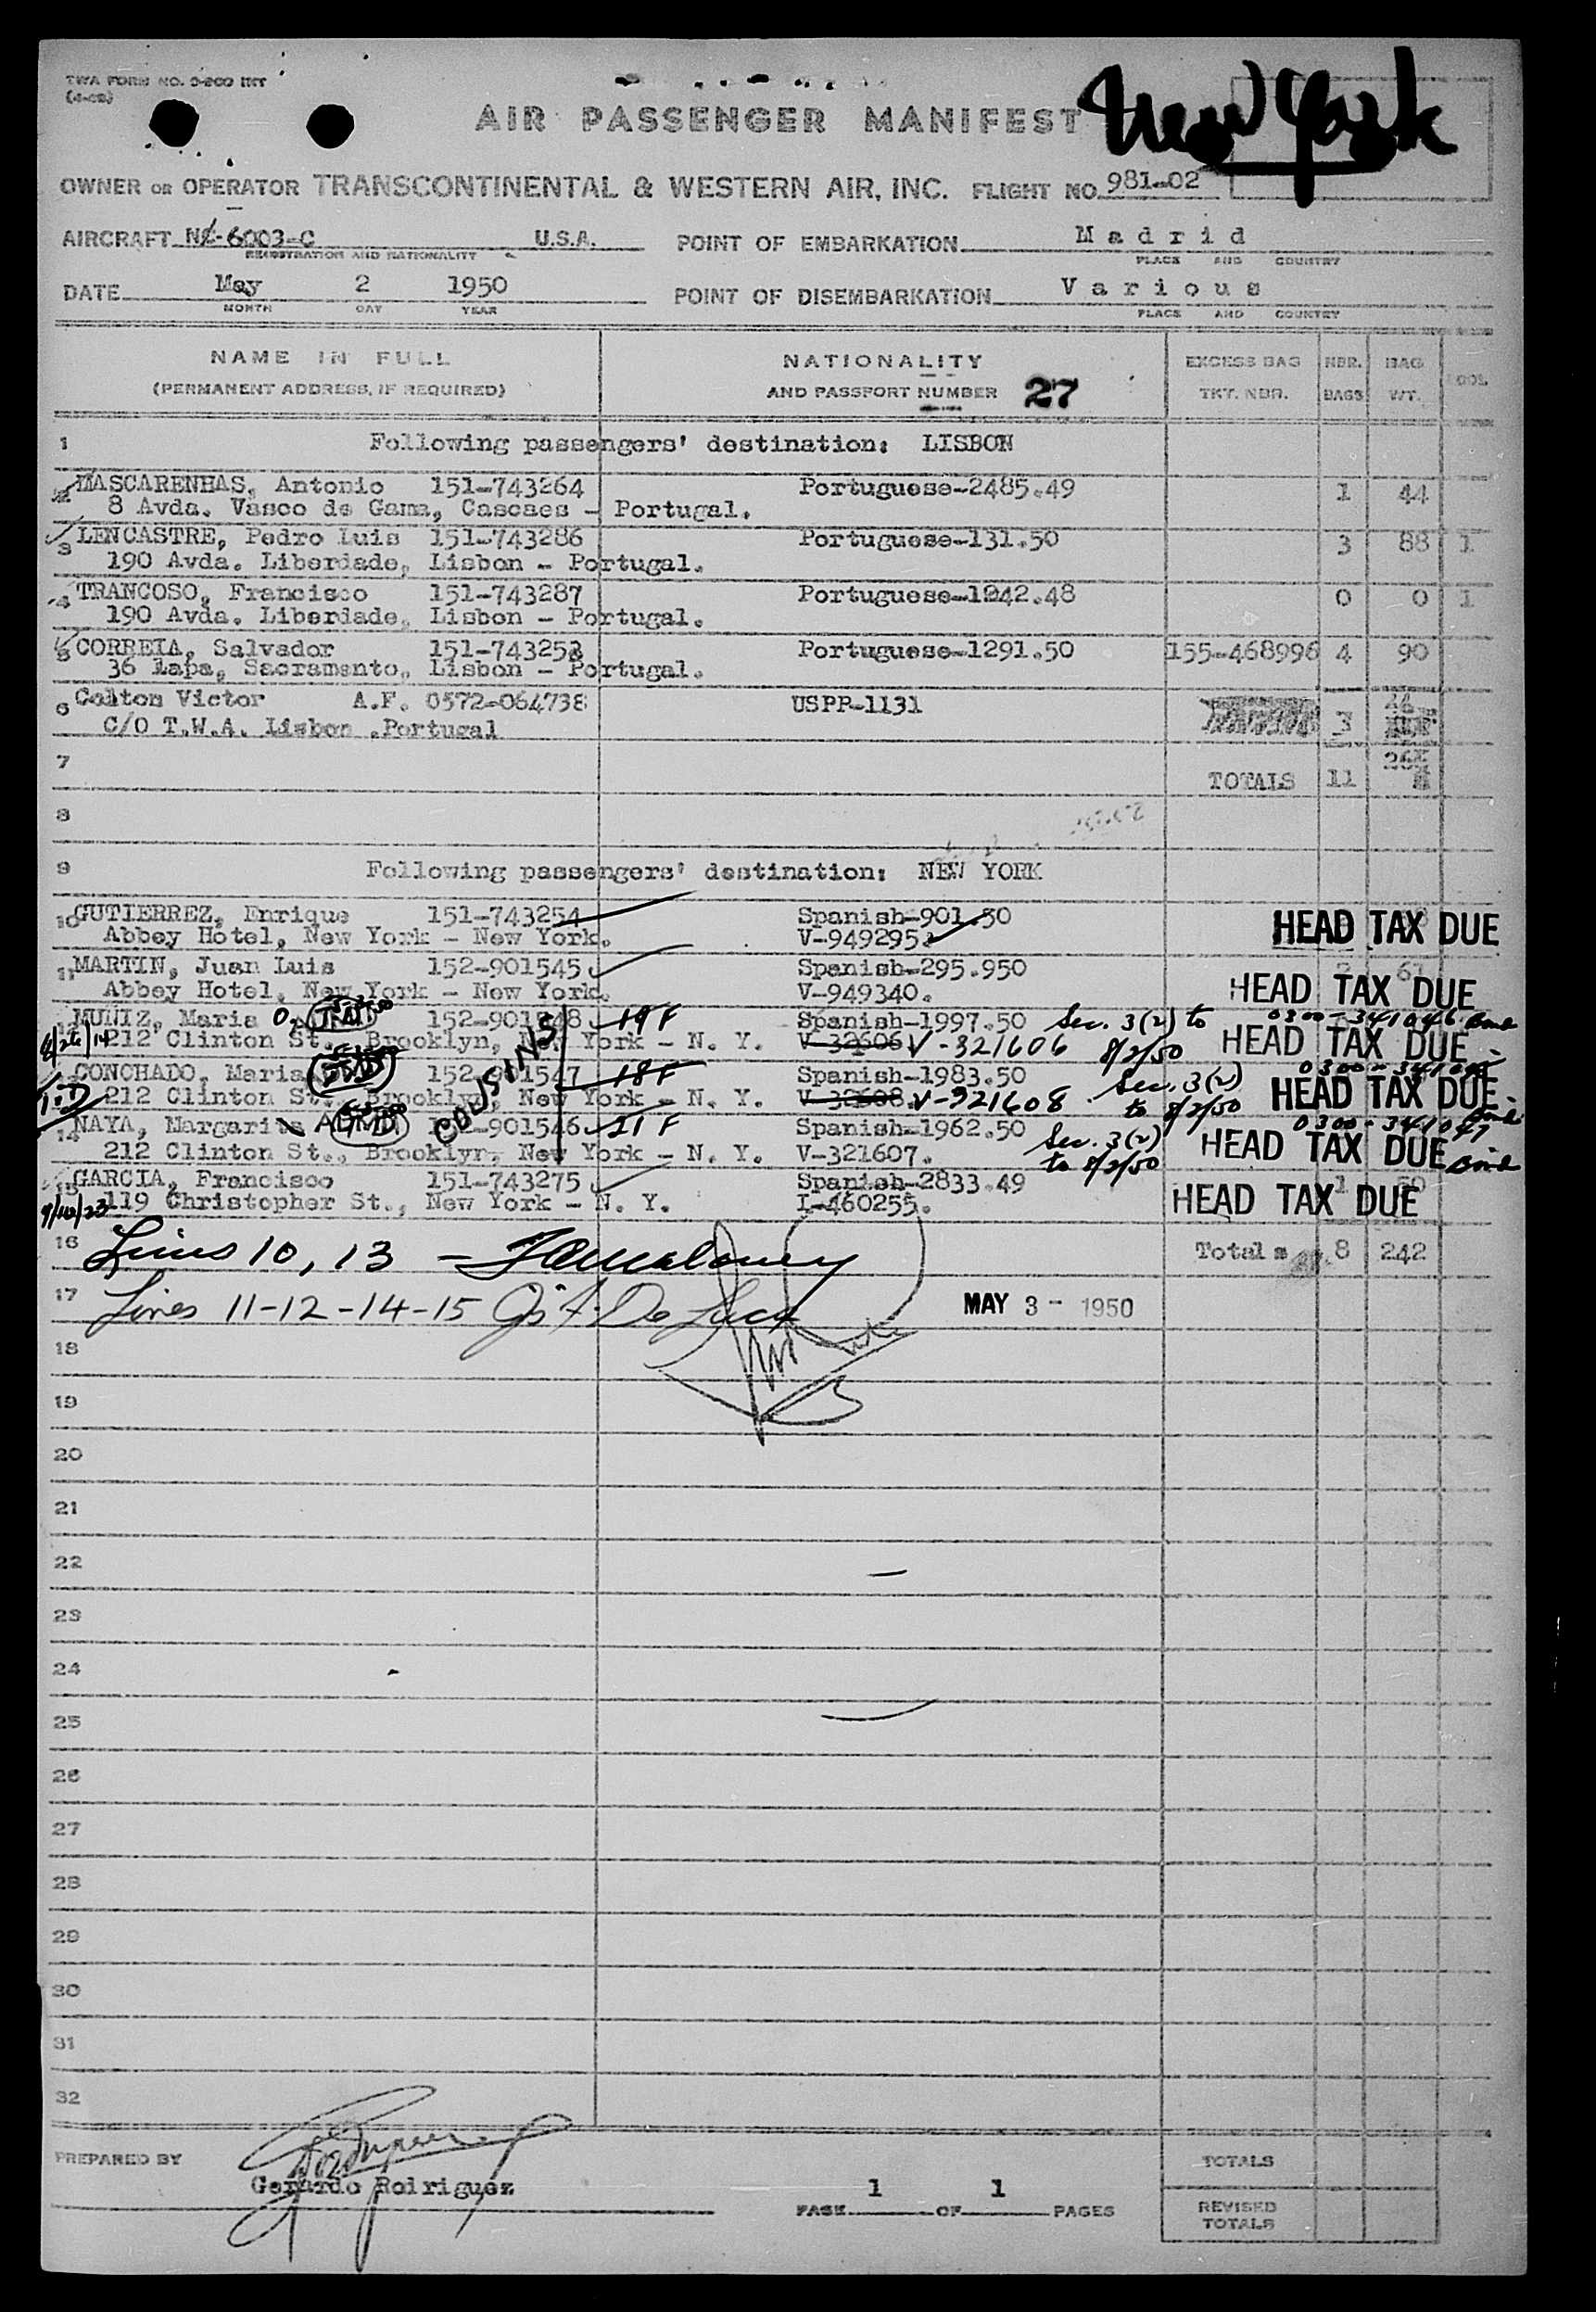 TWA FORM NO. O-200 INT
AIR PASSENGER MANIFEST
New York
OWNER OR OPERATOR TRANSCONTINENTAL & WESTERN AIR, INC. FLIGHT NO. 981-02
AIRCRAFT NC-6003-C U.S.A. POINT OF EMBARKATION Madrid
REGISTRATION AND NATIONALITY PLACE AND COUNTRY
DATE May 2 1950 POINT OF DISEMBARKATION Various
MONTH DAY YEAR PLACE AND COUNTRY
NAME IN FULL NATIONALITY EXCESS BAG NBR. BAG
(PERMANENT ADDRESS, IF REQUIRED) AND PASSPORT NUMBER 27 TKT. NBR. BAGS WT.
1 Following passengers' destination: LISBON
2 MASCARENHAS, Antonio 151-743264 Portuguese-2485.49 1 44
8 Avda. Vasco de Gama, Cascaes - Portugal.
3 LENCASTRE, Pedro Luis 151-743286 Portuguese-131.50 3 88 1
190 Avda. Liberdade, Lisbon - Portugal.
4 TRANCOSO, Francisco 151-743287 Portuguese-1242.48 0 0 1
190 Avda. Liberdade, Lisbon - Portugal.
5 CORREIA, Salvador Portuguese-1291.50 155-468996 4 90
36 Lapa, Sacramento, Lisbon - Portugal.
6 Colton Victor A.F. 0572-064738 USPP-1131 3
C/O T.W.A. Lisbon .Portugal
7 TOTALS 11
8
9 Following passengers' destination: NEW YORK
10 GUTIERREZ, Enrique 151-743254 Spanish-901.50 HEAD TAX DUE
Abbey Hotel, New York - New York. V-949295
11 MARTIN, Juan Luis 152-901545 Spanish-295.950 HEAD TAX DUE
Abbey Hotel, New York - New York. V-949340.
12 MUNIZ, Maria 19 F Spanish-1997.50 Sec. 3(2) to 8/2/50 0300-341046 Bond
212 Clinton St., Brooklyn, New York - N. Y. V-32606 V-321606 HEAD TAX DUE
13 CONCHADO, Maria 152-901547 18 F Spanish-1983.50 Sec. 3(2) to 8/2/50 HEAD TAX DUE
212 Clinton St., Brooklyn, New York - N. Y. V-32608. V-321608
COUSINS
14 NAYA, Margarita 152-901546 21 F Spanish-1962.50 Sec. 3(2) to 8/2/50 0300-341047 Bond
212 Clinton St., Brooklyn, New York - N. Y. V-321607. HEAD TAX DUE
15 GARCIA, Francisco 151-743275 Spanish-2833.49 1 HEAD TAX DUE
119 Christopher St., New York - N. Y. I-460255.
16 Lines 10, 13 - Total 8 242
17 Lines 11-12-14-15 MAY 3 - 1950
18
19
20
21
22
23
24
25
26
27
28
29
30
31
32
PREPARED BY Gerardo Rodriguez TOTALS
PAGE 1 OF 1 PAGES REVISED TOTALS